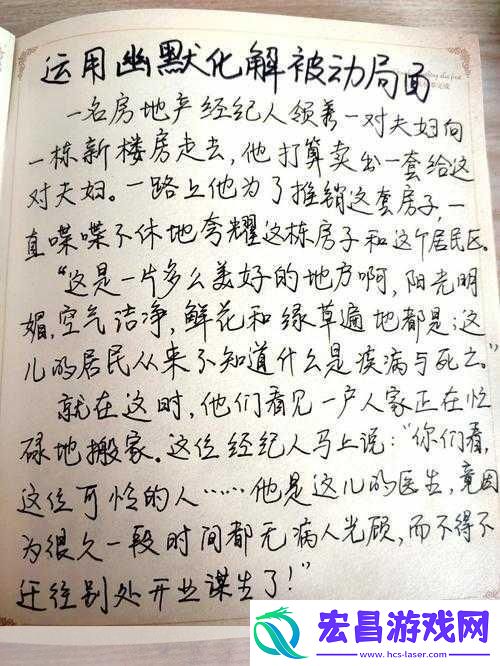 运用幽默化解被动局面
一名房地产经纪人领着一对夫妇向
一栋新楼房走去,他打算卖出一套给这
对夫妇。一路上他为了推销这套房子,一
直喋喋不休地夸耀这栋房子和这个居民区。
“这是一片多么美好的地方啊,阳光明
媚,空气洁净,鲜花和绿草遍地都是;这
儿的居民从来不知道什么是疾病与死亡。”
就在这时,他们看见一户人家正在忙
碌地搬家。这位经纪人马上说:“你们看,
这位可怜的人……他是这儿的医生,竟因
为很久一段时间都无病人光顾,而不得不
迁往别处开业谋生了!”
宏昌游戏网
www.hcs-laser.com